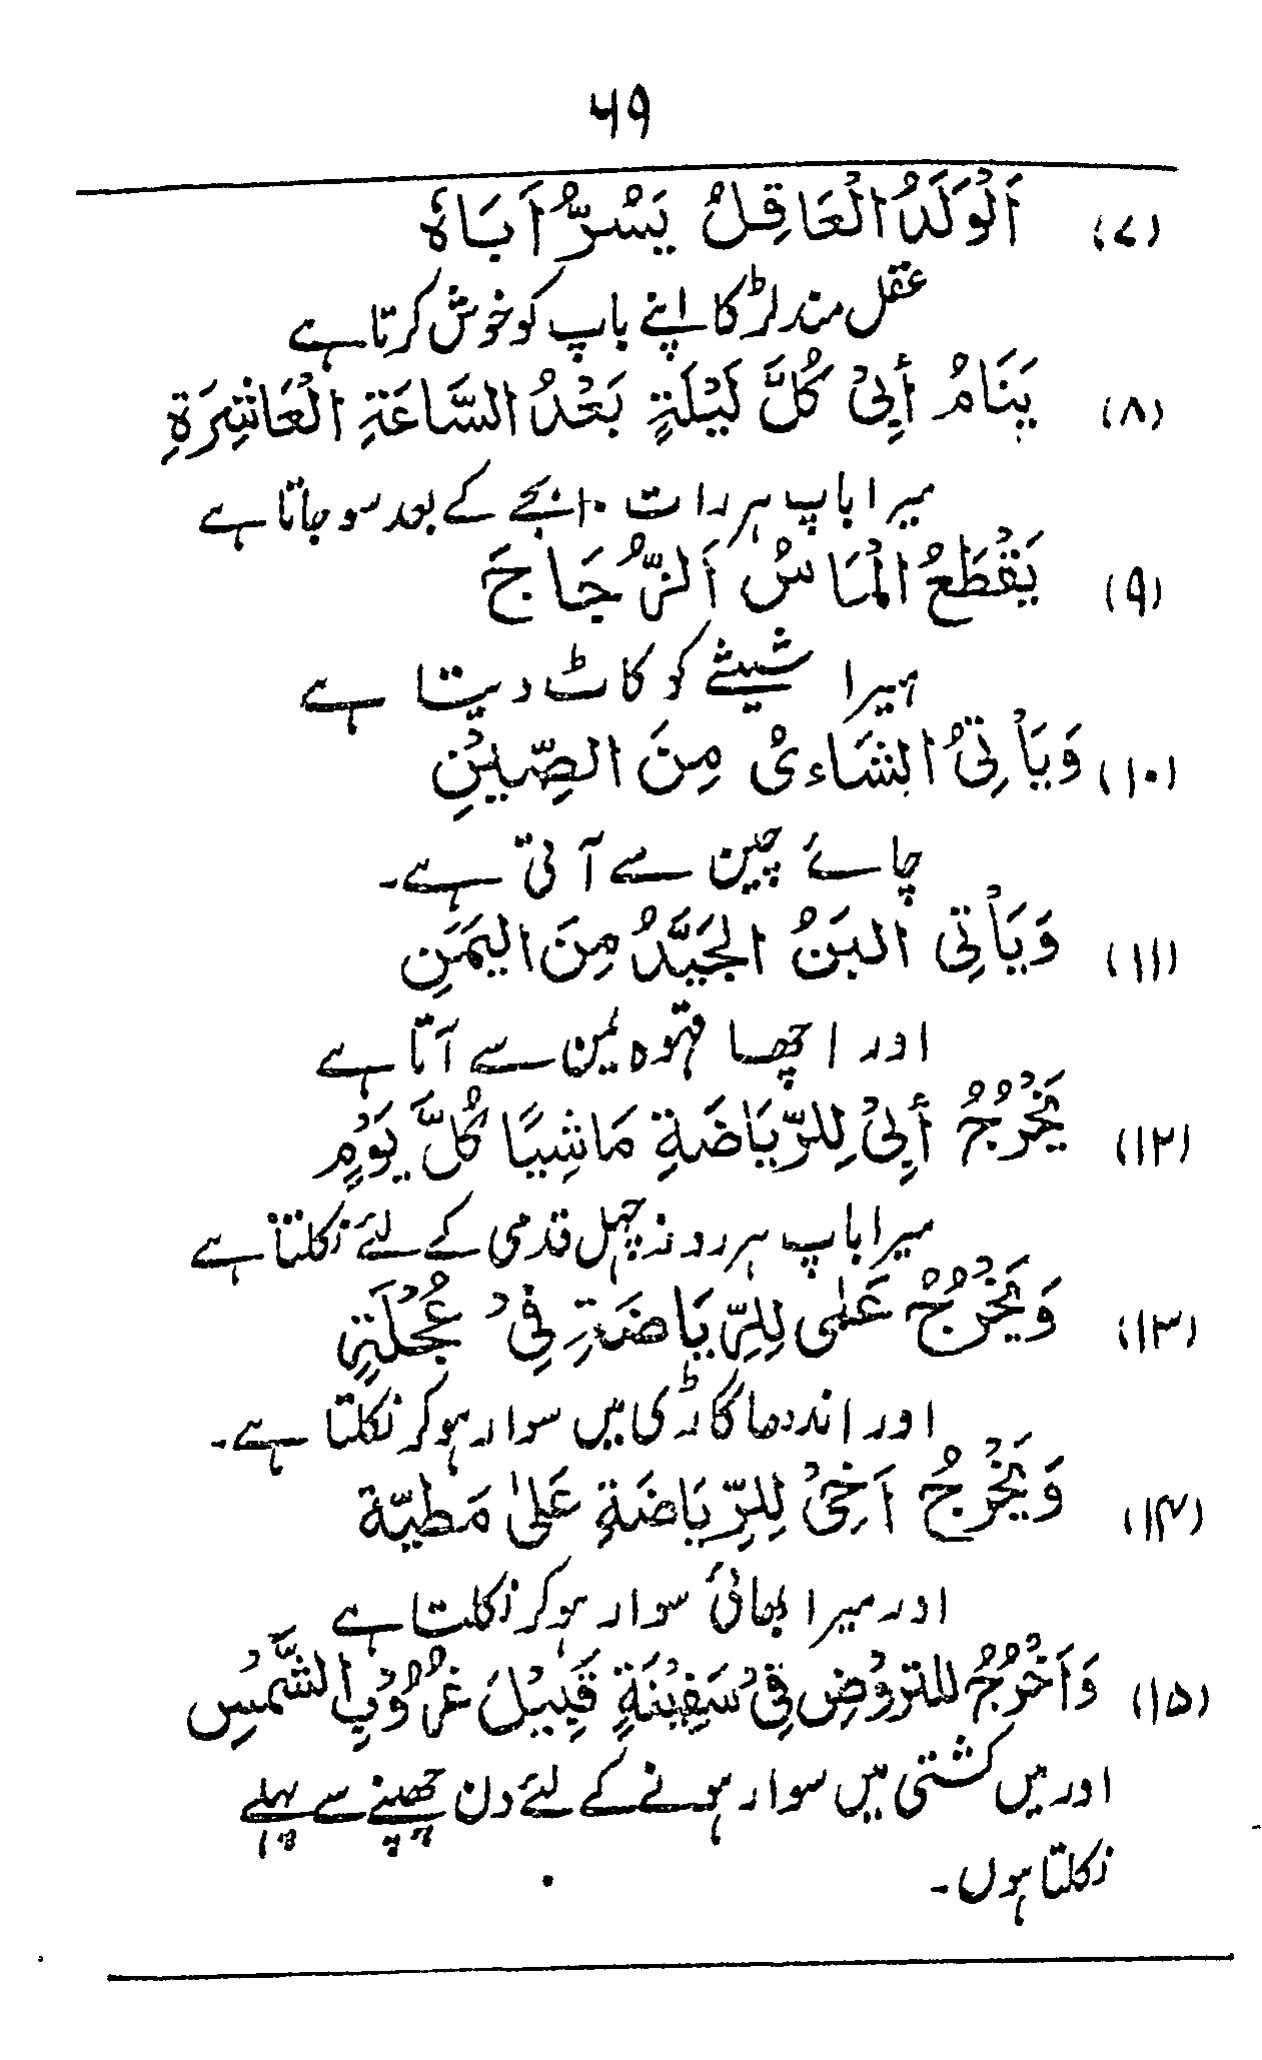 ۶۹
(۷) اَلْوَلَدُ الْعَاقِلُ يَسْرُّ اَبَاهُ
عقل مند لڑکا اپنے باپ کو خوش کرتا ہے
(۸) يَنَامُ أَبِىْ كُلَّ لَيْلَةٍ بَعْدُ السَّاعَةِ الْعَاشِرَةِ
میرا باپ ہر رات ۱۰ بجے کے بعد سو جاتا ہے
(۹) يَقْطَعُ الْمَاسُ اَلزُّجَاجَ
ہیرا شیشے کو کاٹ دیتا ہے
(۱۰) وَيَأْتِىُ الشَاءىْ مِنَ الصِّيْنِ
چائے چین سے آتی ہے۔
(۱۱) وَيَأْتِى البَنُ الجَيَّدُ مِنَ اليَمَنِ
اور اچھا قہوہ یمن سے آتا ہے
(۱۲) يَخْرُجُ أَبِىْ لِلرِّيَاضَةِ مَاشِيًا كُلَّ يَوْمٍ
میرا باپ ہر روز چہل قدمی کے لئے نکلتا ہے
(۱۳) وَيَخْرُجْ عَلٰى لِلِرِّيَاضَةِ فِىْ عُجْلَةٍ
اور اندھا گاڑی میں سوار ہو کر نکلتا ہے۔
(۱۴) وَيَخْرُجُ اَخِىْ لِلرِّيَاضَةِ عَلىٰ مَطيّة
اور میرا بھائی سوار ہو کر نکلتا ہے
(۱۵) وَاَخْرُجُ للتروُضِ فِىْ سَفِيْنَةٍ قَبِيْلَ غُرُوْبِ الشَّمْسِ
اور میں کشتی میں سوار ہونے کے لئے دن چھپنے سے پہلے
نکلتا ہوں۔